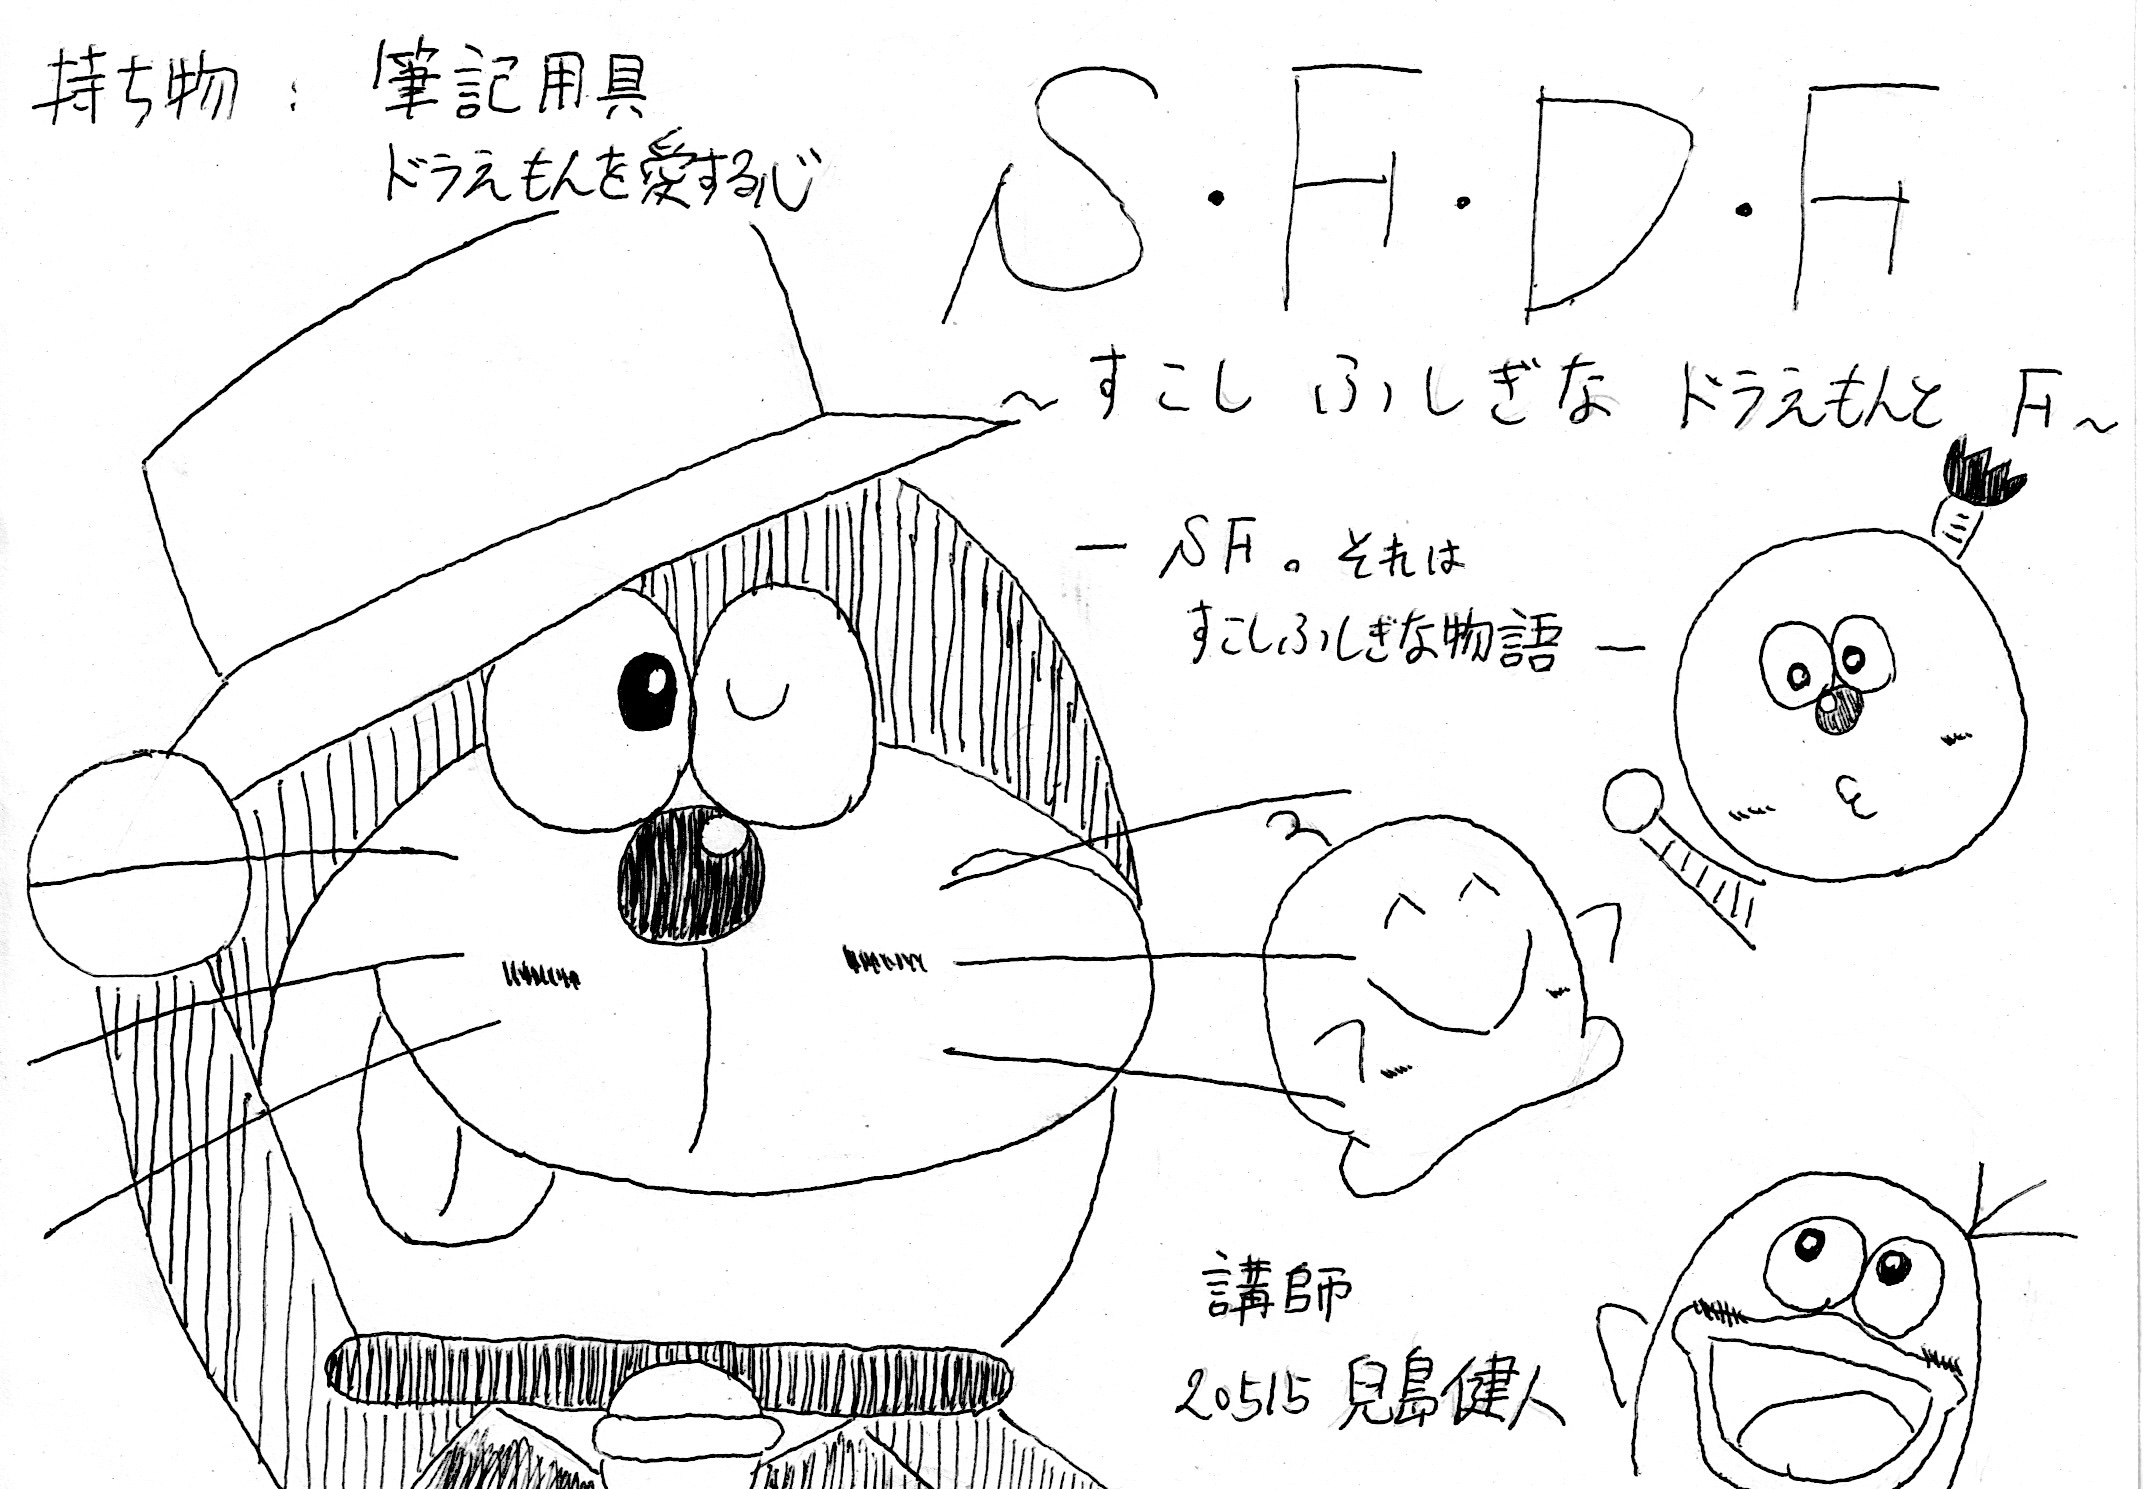 持ち物 : 筆記用具
ドラえもんを愛する心
S・F・D・F
～すこし ふしぎな ドラえもんと F～
― SF。それは
すこしふしぎな物語 ―
講師
20515 児島健人